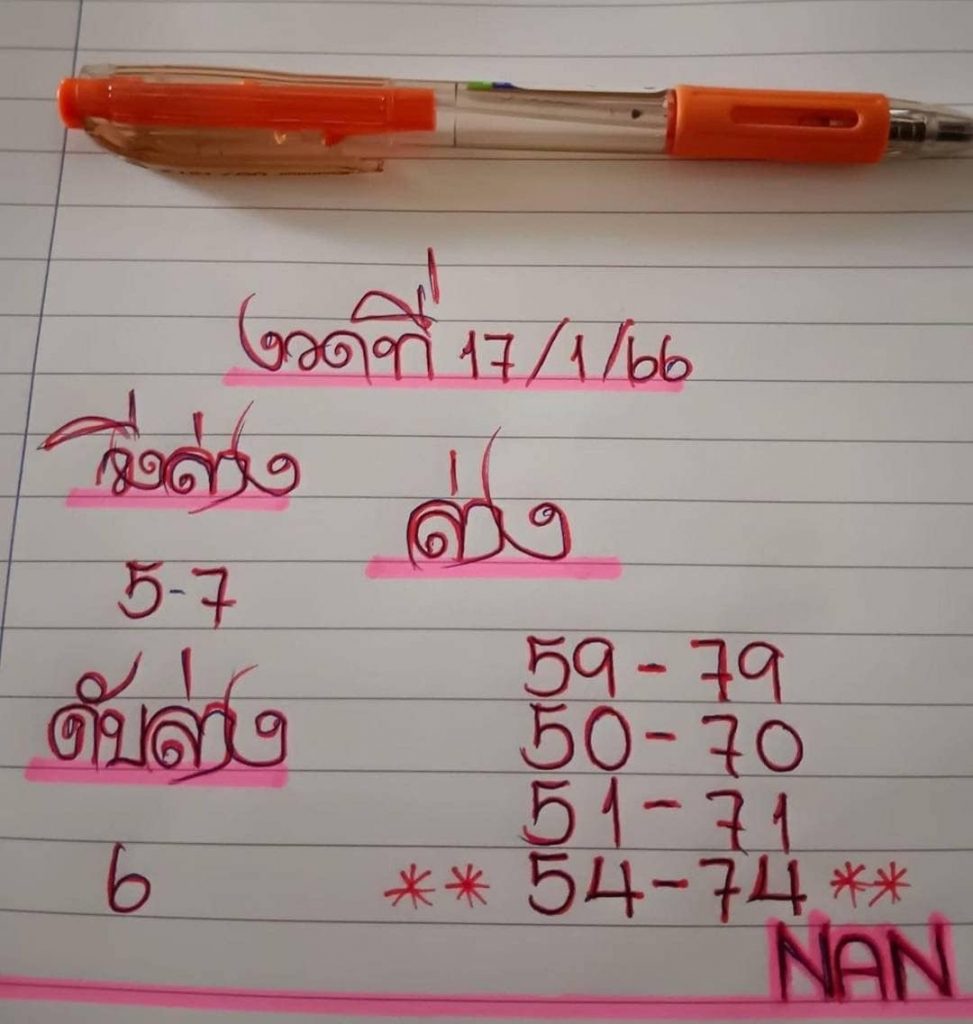 งวดที่ 17/1/66
วิ่งล่าง
ล่าง
5-7
59-79
50-70
ดับล่าง
51-71
6
**54-74**
NAN